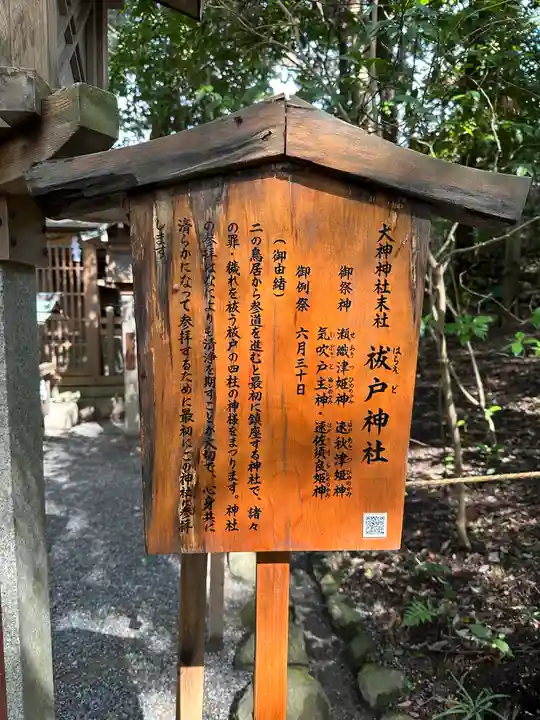 大神神社末社
祓戸神社
はらえど
御祭神 瀬織津姫神 速秋津姫神
気吹戸主神・速佐須良姫神
御例祭 六月三十日
(御由緒)
二の鳥居から参道を進むと最初に鎮座する神社で、諸々
の罪・穢れを祓う祓戸の四柱の神様をまつります。神社
の参拝はなによりも清浄を期すことが大切で、心身共に
清らかになって参拝するために最初にこの神社に参拝
します